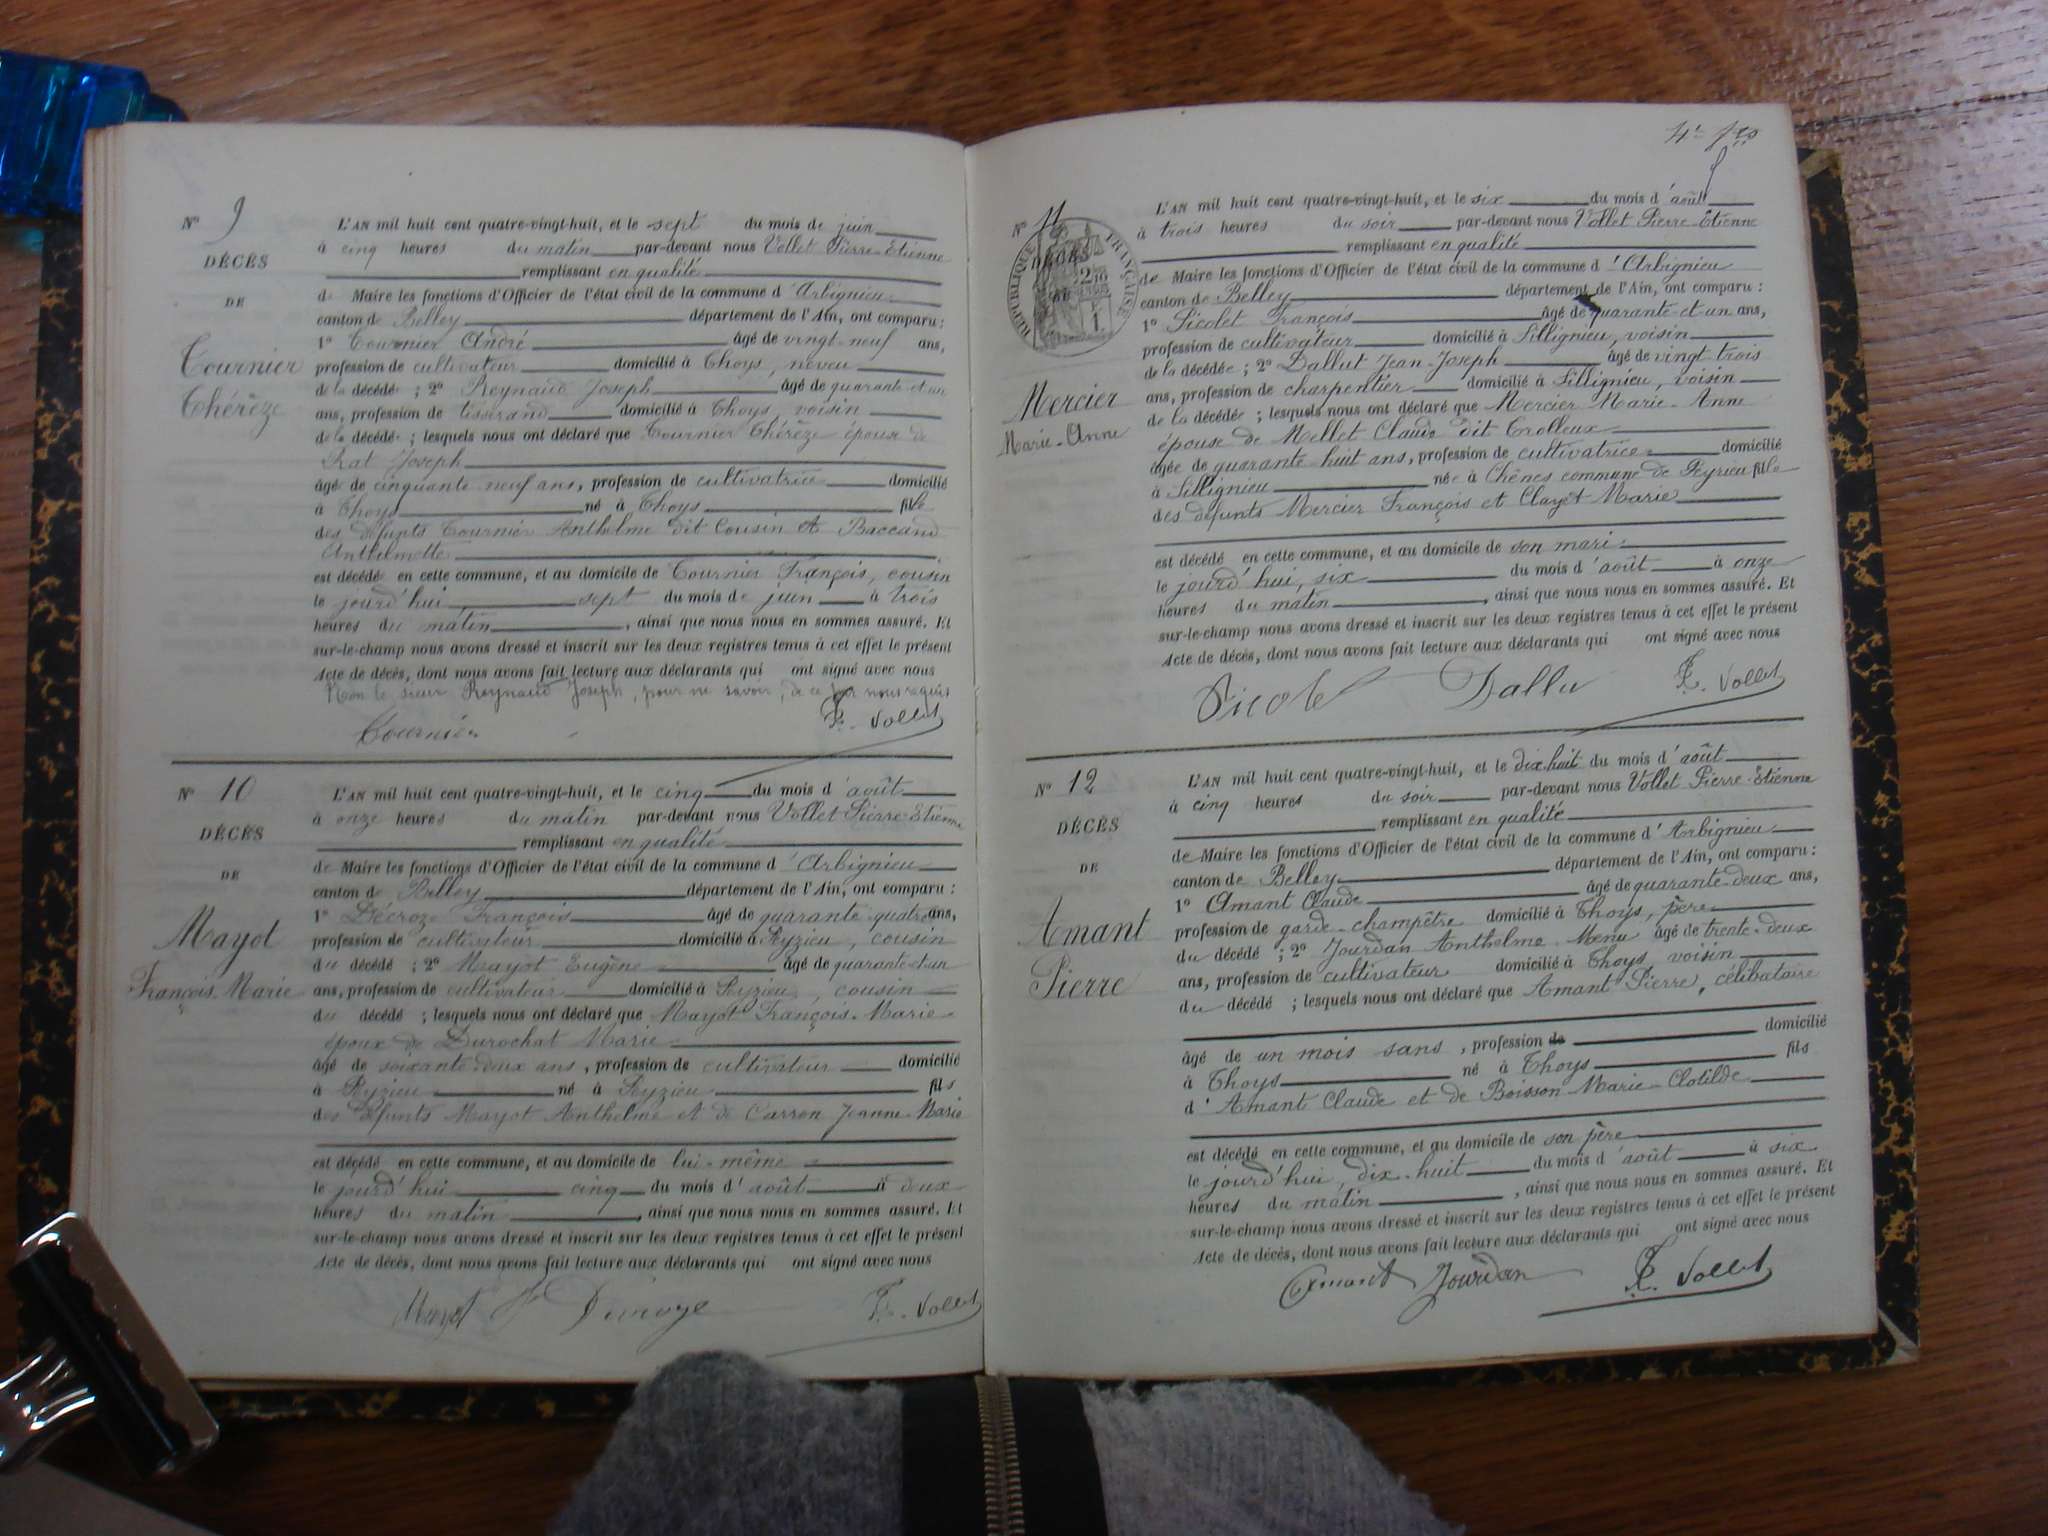 N° 9
DÉCÈS
DE
Tournier
Thérèze
L'AN mil huit cent quatre-vingt-huit, et le sept du mois de juin
à cinq heures du matin par-devant nous Vollet Pierre-Etienne
remplissant en qualité
de Maire les fonctions d'Officier de l'état civil de la commune d'Arbignieu
canton de Belley département de l'Ain, ont comparu :
1° Tournier André âgé de vingt-neuf ans,
profession de cultivateur domicilié à Thoys, neveu
de la décédée ; 2° Reynaud Joseph âgé de quarante-et-un
ans, profession de tisserand domicilié à Thoys, voisin
de la décédée ; lesquels nous ont déclaré que Tournier Thérèze épouse de
Rat Joseph
âgée de cinquante-neuf ans, profession de cultivatrice domicilié
à Thoys né à Thoys fille
des défunts Tournier Anthelme dit Cousin et Baccand
Anthelmette
est décédée en cette commune, et au domicile de Tournier François, cousin
le jourd'hui sept du mois de juin à trois
heures du matin, ainsi que nous nous en sommes assuré. Et
sur-le-champ nous avons dressé et inscrit sur les deux registres tenus à cet effet le présent
Acte de décès, dont nous avons fait lecture aux déclarants qui ont signé avec nous
Non le sieur Reynaud Joseph, pour ne savoir, de ce par nous requis
Tournier P.E. Vollet
N° 10
DÉCÈS
DE
Mayot
François-Marie
L'AN mil huit cent quatre-vingt-huit, et le cinq du mois d'août
à onze heures du matin par-devant nous Vollet Pierre-Etienne
remplissant en qualité
de Maire les fonctions d'Officier de l'état civil de la commune d'Arbignieu
canton de Belley département de l'Ain, ont comparu :
1° Décroze François âgé de quarante-quatre ans,
profession de cultivateur domicilié à Peyzieu, cousin
du décédé ; 2° Mayot Eugène âgé de quarante-et-un
ans, profession de cultivateur domicilié à Peyzieu, cousin
du décédé ; lesquels nous ont déclaré que Mayot François-Marie
époux de Durochat Marie
âgé de soixante-deux ans, profession de cultivateur domicilié
à Peyzieu né à Peyzieu fils
des défunts Mayot Anthelme et de Carron Jeanne-Marie
est décédé en cette commune, et au domicile de lui-même
le jourd'hui cinq du mois d'août à deux
heures du matin, ainsi que nous nous en sommes assuré. Et
sur-le-champ nous avons dressé et inscrit sur les deux registres tenus à cet effet le présent
Acte de décès, dont nous avons fait lecture aux déclarants qui ont signé avec nous
Mayot P.E. Vollet
N° 11
RÉPUBLIQUE FRANÇAISE
DÉCÈS
DE
Mercier
Marie-Anne
L'AN mil huit cent quatre-vingt-huit, et le six du mois d'août
à trois heures du soir par-devant nous Vollet Pierre-Etienne
remplissant en qualité
de Maire les fonctions d'Officier de l'état civil de la commune d'Arbignieu
canton de Belley département de l'Ain, ont comparu :
1° Picolet François âgé de quarante-et-un ans,
profession de cultivateur domicilié à Sillignieu, voisin
de la décédée ; 2° Dallut Jean-Joseph âgé de vingt-trois
ans, profession de charpentier domicilié à Sillignieu, voisin
de la décédée ; lesquels nous ont déclaré que Mercier Marie-Anne
épouse de Mellet Claude dit Trolleux
âgée de quarante-huit ans, profession de cultivatrice domicilié
à Sillignieu née à Chênes commune de Peyrieu fille
des défunts Mercier François et Clayet Marie
est décédé en cette commune, et au domicile de son mari
le jourd'hui, six du mois d'août à onze
heures du matin, ainsi que nous nous en sommes assuré. Et
sur-le-champ nous avons dressé et inscrit sur les deux registres tenus à cet effet le présent
Acte de décès, dont nous avons fait lecture aux déclarants qui ont signé avec nous
Picolet Dallu P.E. Vollet
N° 12
DÉCÈS
DE
Amant
Pierre
L'AN mil huit cent quatre-vingt-huit, et le dix-huit du mois d'août
à cinq heures du soir par-devant nous Vollet Pierre-Etienne
remplissant en qualité
de Maire les fonctions d'Officier de l'état civil de la commune d'Arbignieu
canton de Belley département de l'Ain, ont comparu :
1° Amant Claude âgé de quarante-deux ans,
profession de garde-champêtre domicilié à Thoys, père
du décédé ; 2° Jourdan Anthelme-Menu âgé de trente-deux
ans, profession de cultivateur domicilié à Thoys, voisin
du décédé ; lesquels nous ont déclaré que Amant Pierre, célibataire
âgé de un mois sans, profession de domicilié
à Thoys né à Thoys fils
d'Amant Claude et de Boisson Marie-Clotilde
est décédé en cette commune, et au domicile de son père
le jourd'hui, dix-huit du mois d'août à six
heures du matin, ainsi que nous nous en sommes assuré. Et
sur-le-champ nous avons dressé et inscrit sur les deux registres tenus à cet effet le présent
Acte de décès, dont nous avons fait lecture aux déclarants qui ont signé avec nous
Amant Jourdan P.E. Vollet